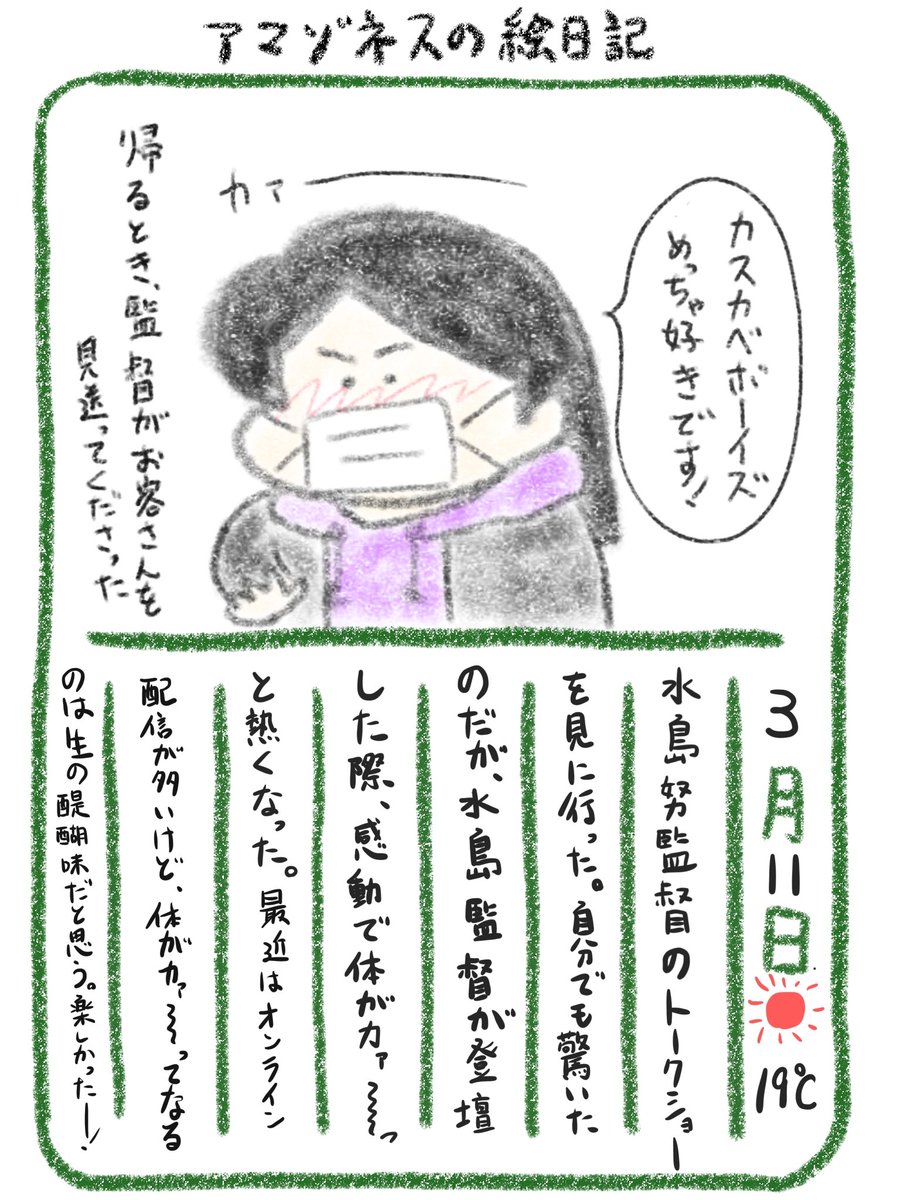 アマゾネスの絵日記
カスカベボーイズ
めっちゃ好きです!
カァー
帰るとき、監督がお客さんを
見送ってくださった
3月11日 19℃
水島努監督のトークショー
を見に行った。自分でも驚いた
のだが、水島監督が登壇
した際、感動で体がカァ〜〜っ
と熱くなった。最近はオンライン
配信が多いけど、体がカァ〜〜ってなる
のは生の醍醐味だと思う。楽しかったー!